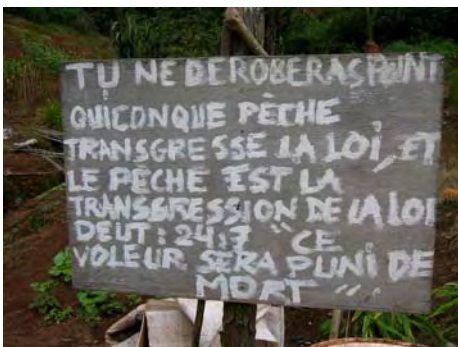 TU NE DEROBERAS POINT
QUICONQUE PÈCHE
TRANSGRESSE LA LOI, ET
LE PECHE EST LA
TRANSGRESSION DE LA LOI
DEUT : 24:7 "CE
VOLEUR SERA PUNI DE
MORT".